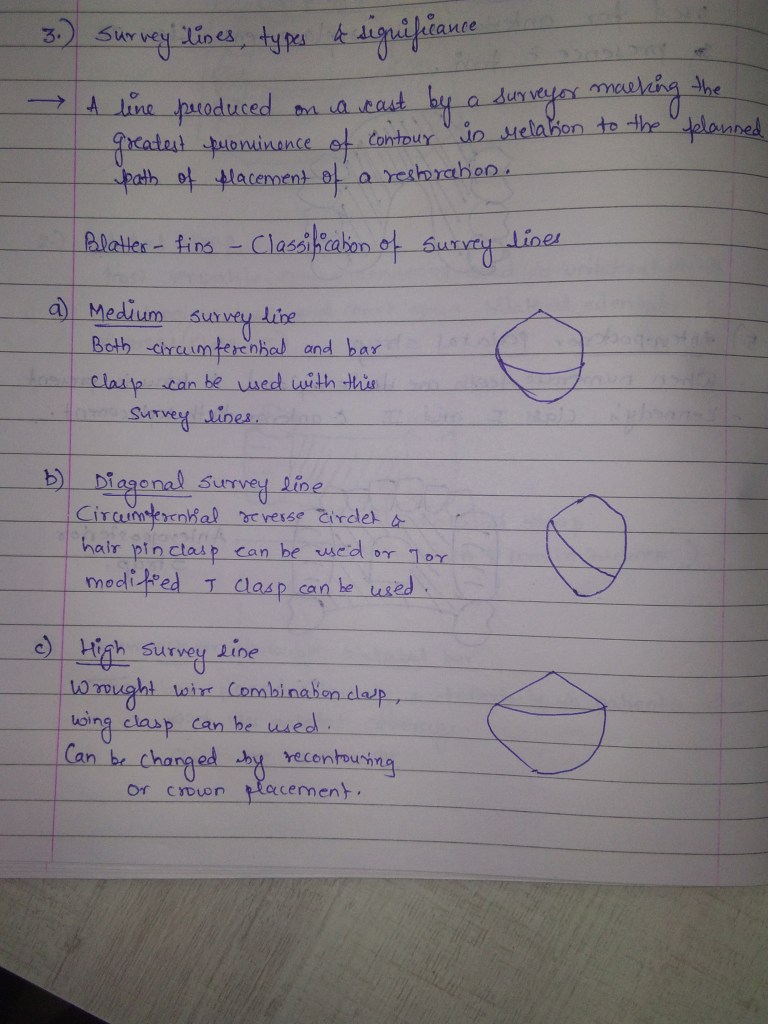 3.) Survey lines, types & significance
→ A line produced on a cast by a surveyor marking the
greatest prominence of contour in relation to the planned
path of placement of a restoration.
Blatter - fins - Classification of survey lines
a) Medium survey line
Both circumferential and bar
clasp can be used with this
survey lines.
b) Diagonal survey line
Circumferential reverse circlet &
hair pin clasp can be used or T or
modified T clasp can be used.
c) High survey line
Wrought wire combination clasp,
wing clasp can be used.
Can be changed by recontouring
or crown placement.